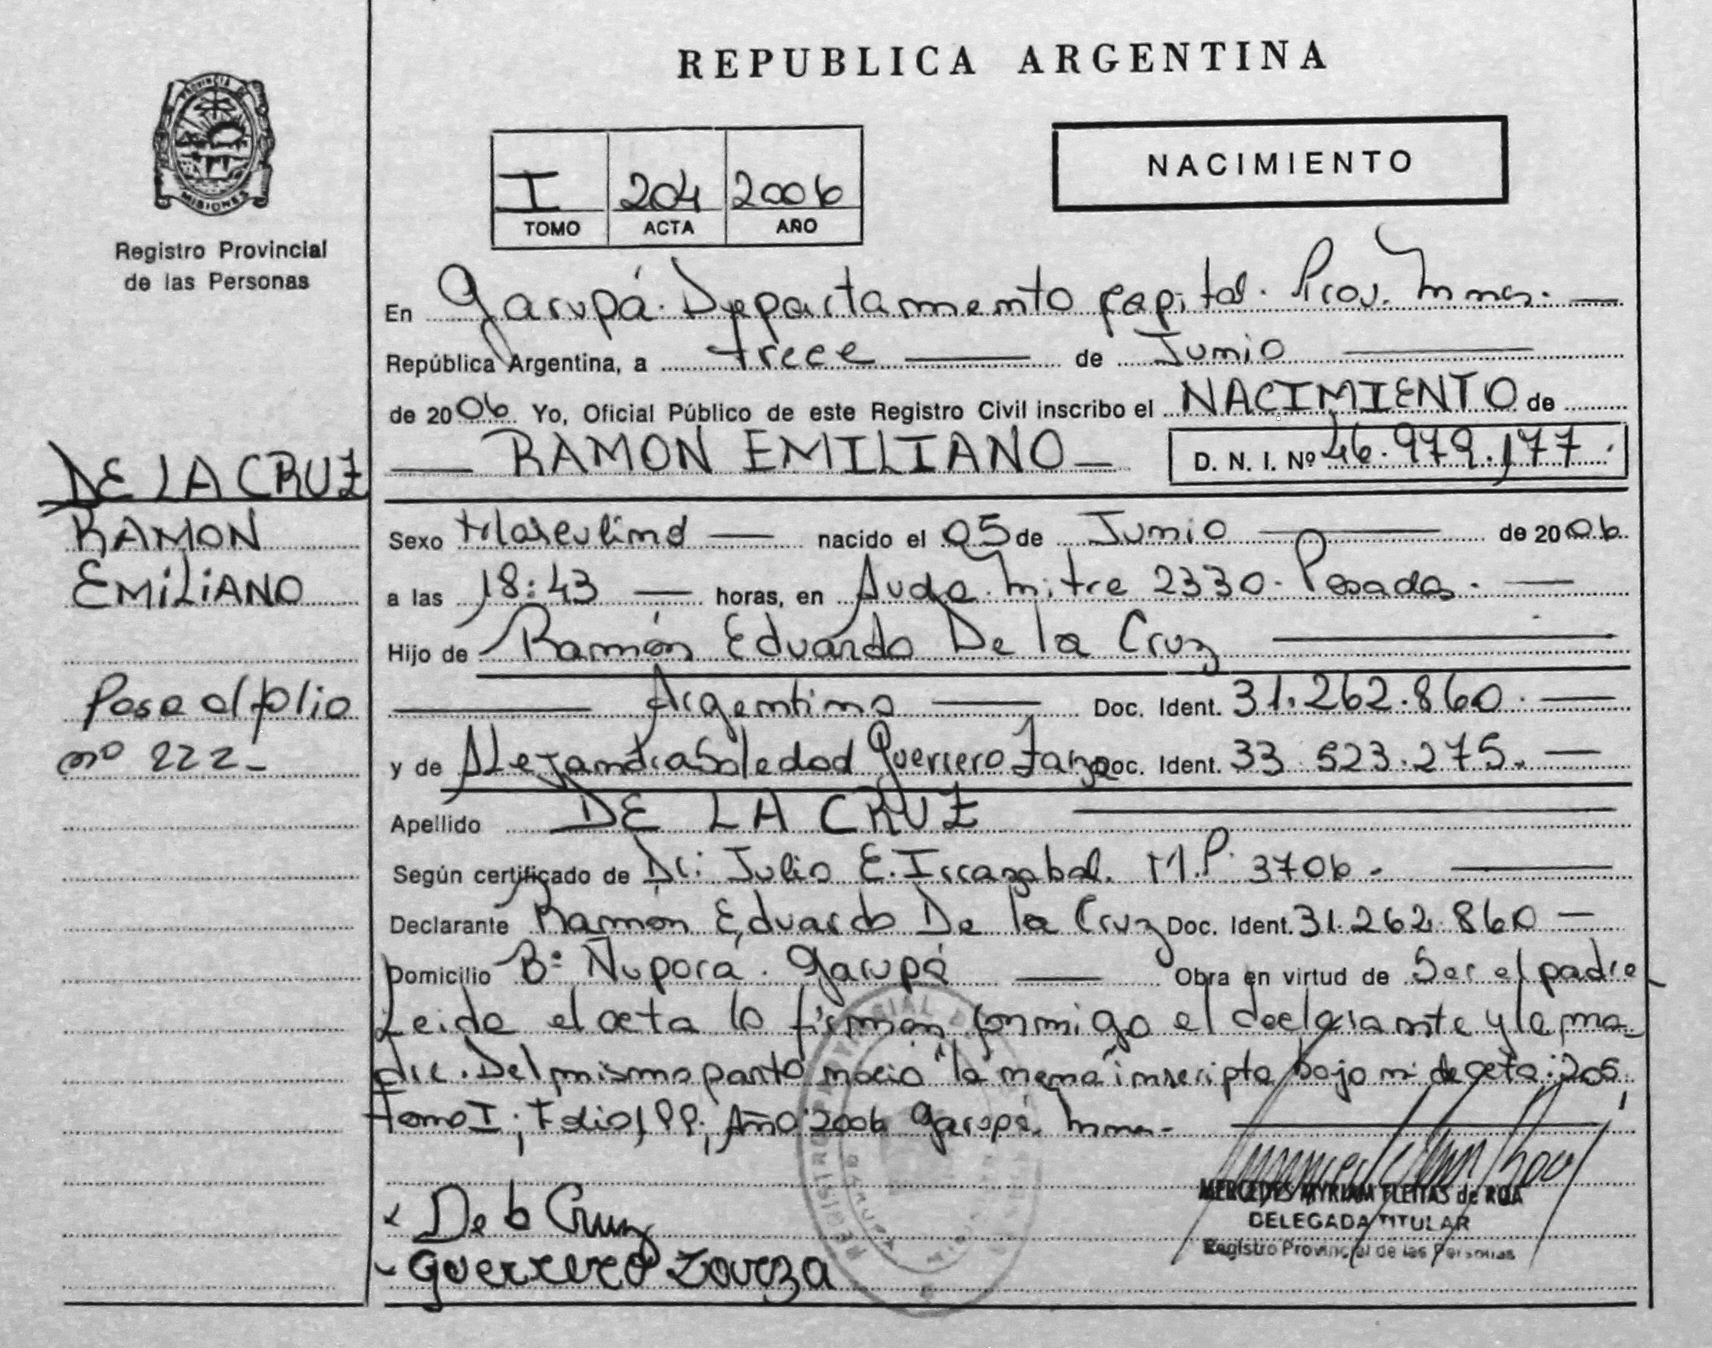 REPUBLICA ARGENTINA
PROVINCIA DE
MISIONES
Registro Provincial
de las Personas
I 204 2006
TOMO ACTA AÑO
NACIMIENTO
En Garupá. Departamento Capital. Prov. Mnes.
República Argentina, a trece de Junio
de 2006. Yo, Oficial Público de este Registro Civil inscribo el NACIMIENTO de
RAMON EMILIANO D. N. I. Nº 46.979.177.
DE LA CRUZ
RAMON
EMILIANO
Pasa al folio
nº 222_
Sexo Masculino nacido el 05 de Junio de 2006.
a las 18:43 horas, en Avda. Mitre 2330. Posadas.
Hijo de Ramón Eduardo De la Cruz
Argentino Doc. Ident. 31.262.860.
y de Alejandra Soledad Guerrero Doc. Ident. 33.523.275.
Apellido DE LA CRUZ
Según certificado de Dr: Julio E. Irrazabal. M.P. 3706.
Declarante Ramón Eduardo De la Cruz Doc. Ident. 31.262.860
Domicilio Bº Ñu porá. Garupá Obra en virtud de Ser el padre
Leida el acta la firman conmigo el declarante y la ma-
dre. Del mismo parto nacio "la nena" inscripta bajo nº de acta: 205
Tomo I; Folio 199; Año 2006 Garupá. Mnes.
De la Cruz
Guerrero Zarza
MERCEDES MYRIAM FLEITAS de ROA
DELEGADA TITULAR
Registro Provincial de las Personas